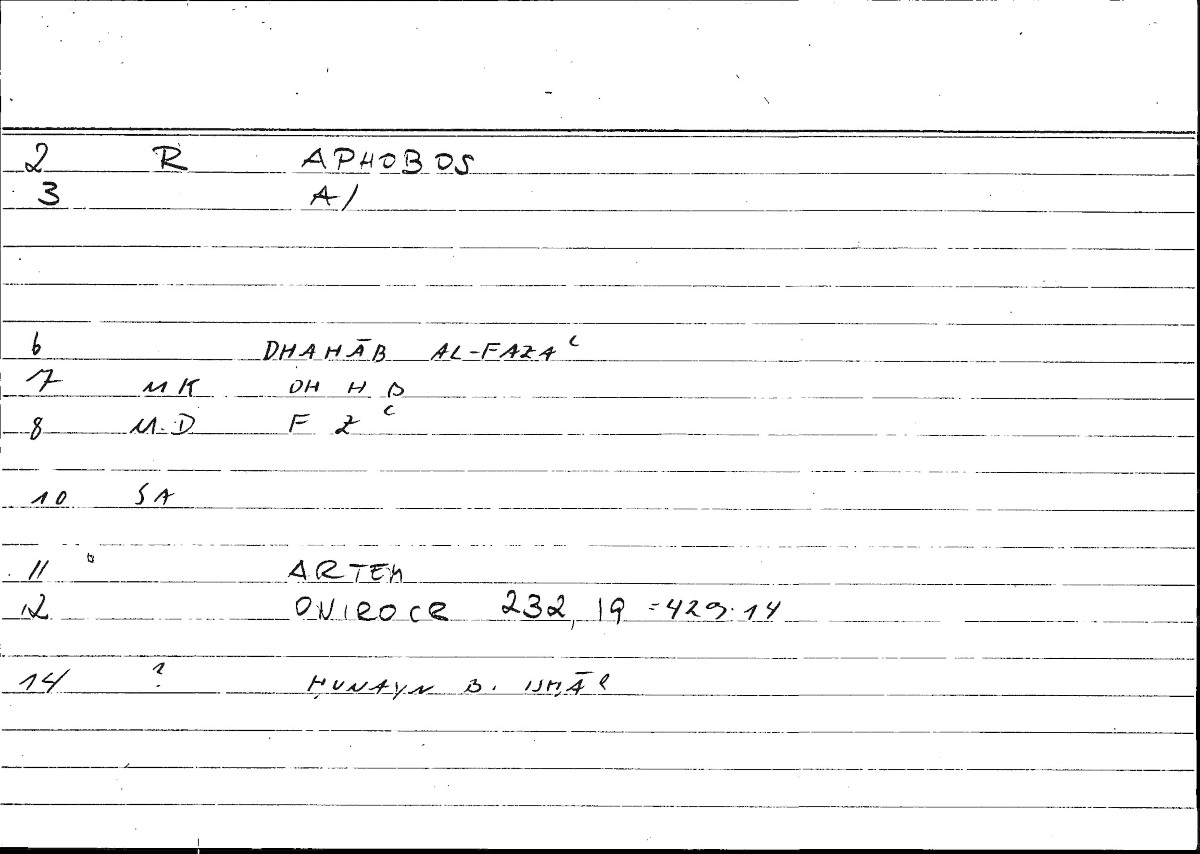 2 R APHOBOS
3 A/
6 DHAHĀB AL-FAZAʿ
7 MK DH H B
8 M.D F Z ʿ
10 SA
11 ARTEM
12 ONIROCR 232,19 = 429.14
14 ? ḤUNAYN B. ISḤĀQ